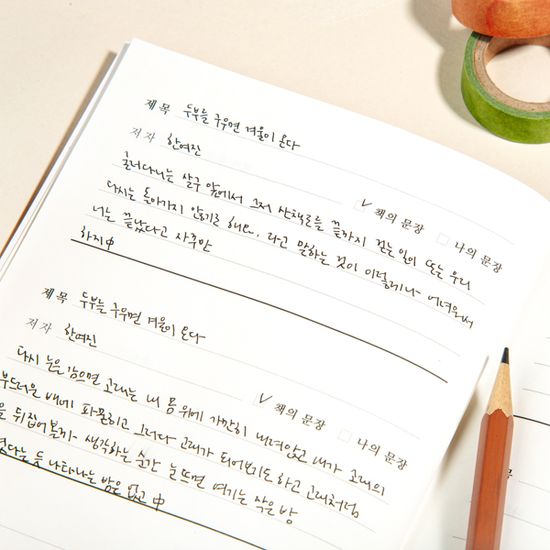 제목 두부를 구우면 겨울이 온다
저자 한여진
✓ 책의 문장 □ 나의 문장
흘러다니는 살구 앞에서 그저 산책로를 끝까지 걷는 일이 또는 우리
다시는 돌아가지 않기로 해요, 라고 말하는 것이 이렇게나 어려워서
너는 끝났다고 사주만
하지 中
제목 두부를 구우면 겨울이 온다
저자 한여진
✓ 책의 문장 □ 나의 문장
다시 눈을 감으면 고래는 내 몸 위에 가만히 내려앉고 내가 고래의
부드러운 배에 파묻히고 그러다 고래가 되어보기도 하고 고래처럼
을 뒤집어볼까 생각하는 순간 눈 뜨면 여기는 작은 방
였다는 듯 나타나는 밤은 없고 中